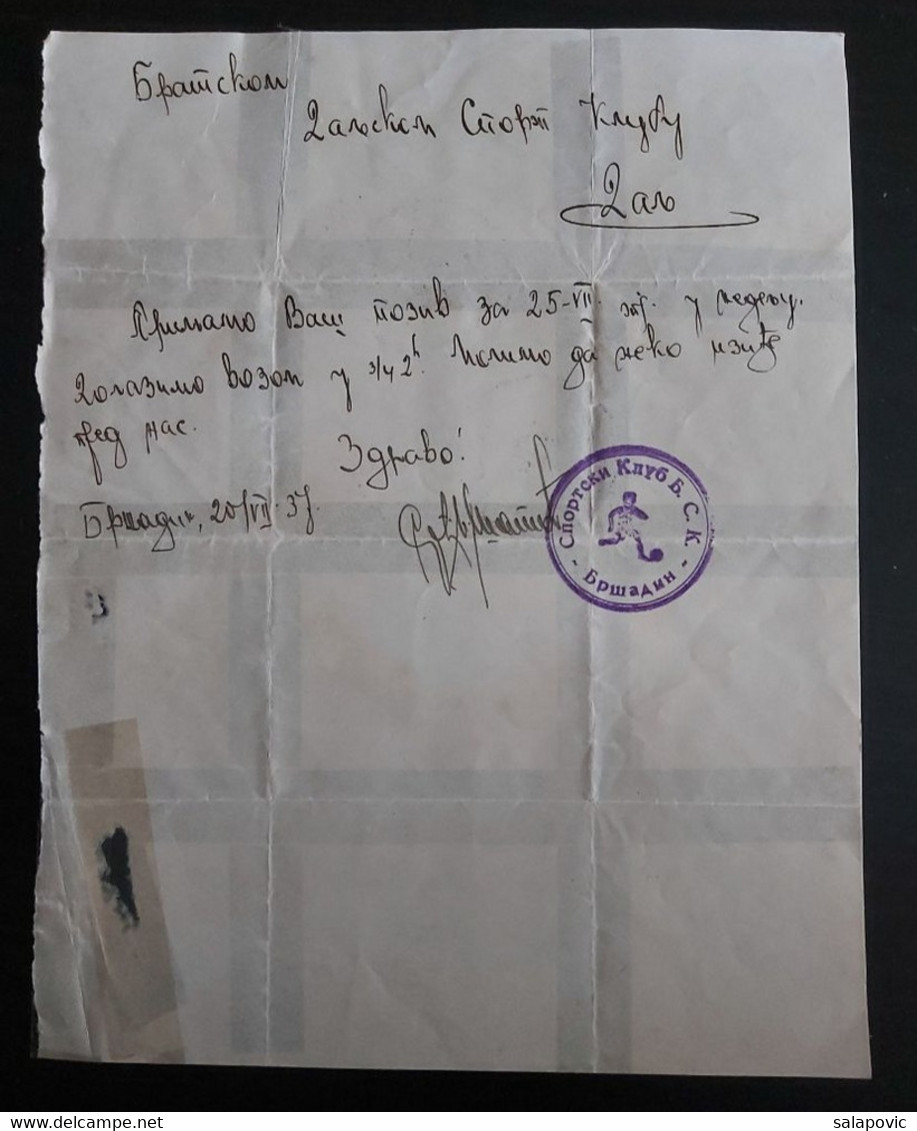 Братском
Даљском Спорт Клубу
Даљ
Примамо Ваш позив за 25-VII. тг. у недељу.
Долазимо возом у 3/4 2h. Молимо да неко изиђе
пред нас.
Здраво!
Бршадин, 20/VII-37.
Спортски Клуб Б. С. К.
- Бршадин -
delcampe.net
salapovic